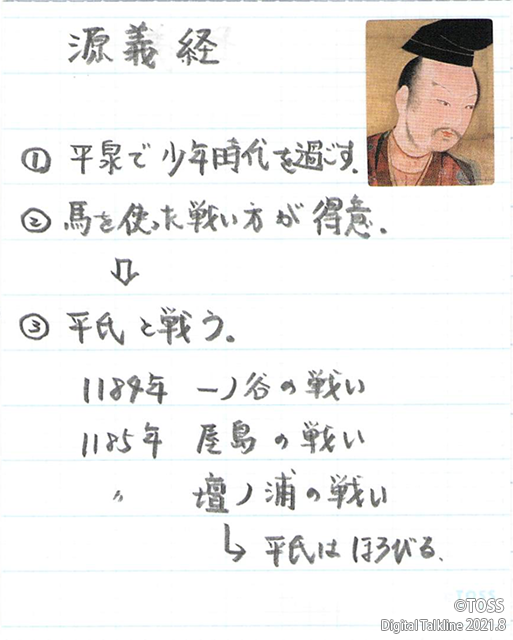 源義経
① 平泉で少年時代を過ごす.
② 馬を使った戦い方が得意.
⇩
③ 平氏と戦う。
1184年 一ノ谷の戦い
1185年 屋島の戦い
〃 壇ノ浦の戦い
↳ 平氏はほろびる.
TOSS
©TOSS
Digital Talkline 2021.8